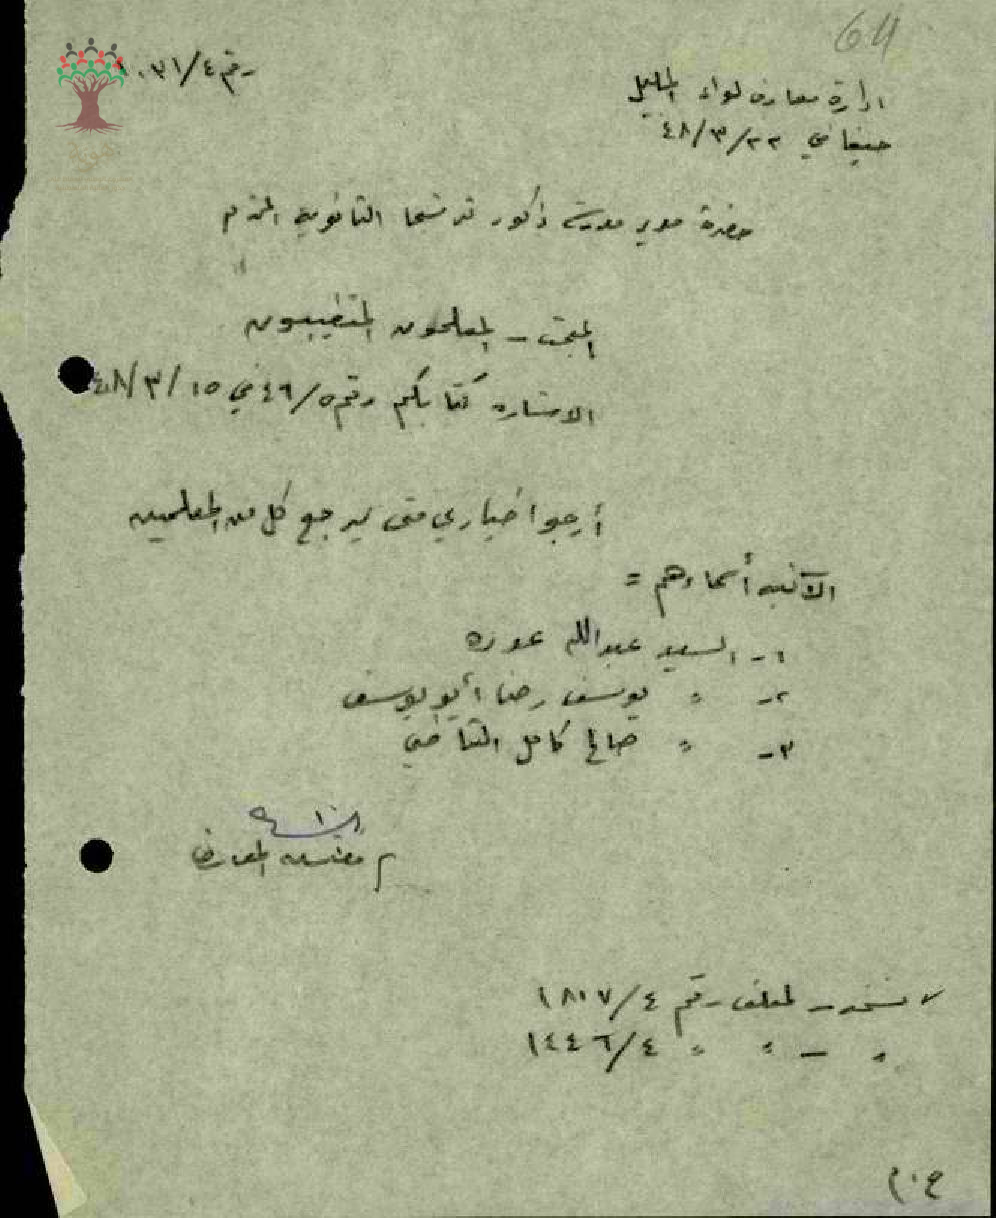 64
رقم ٤/٠٣١
ادارة معارف لواء الجليل
حيفا في ٢٢/٣/٤٨
حضرة مدير مدرسة ذكور ترشيحا الثانوية المحترم
المبحث - المعلمون المتغيبون
الاشاره كتابكم رقم ٤٦/٥ في ١٥/٣/٤٨
أرجو اخباري متى يرجع كل من المعلمين
الآتيه أسماءهم =
١- السيد عبدالله عوده
٢- " يوسف رضا أبو يوسف
٣- " صالح كامل القاضي
م مفتش المعارف
نسخه - لملف رقم ٤/١٨٠٧
" - " " ٤/١٤٤٦